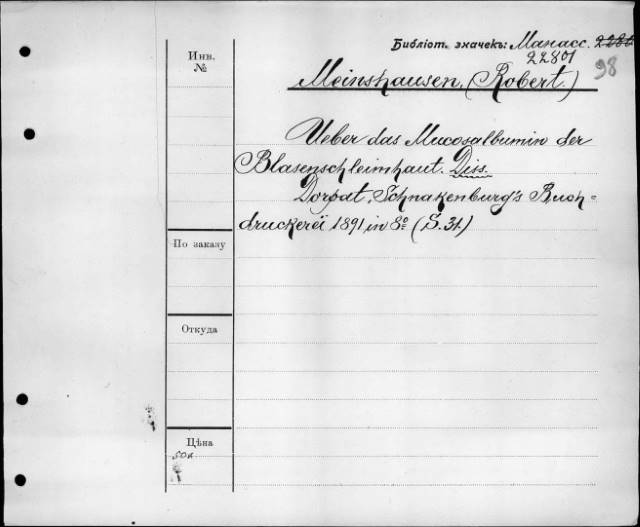 Библiот. значекъ: Манасс.
22801
98
Инв.
№
Meinshausen, (Robert.)
Ueber das Mucosalbumin der
Blasenschleimhaut. Diss.
Dorpat, Schnakenburg's Buch-
druckerei 1891 in 8º (S. 31.)
По заказу
Откуда
Цѣна
50к